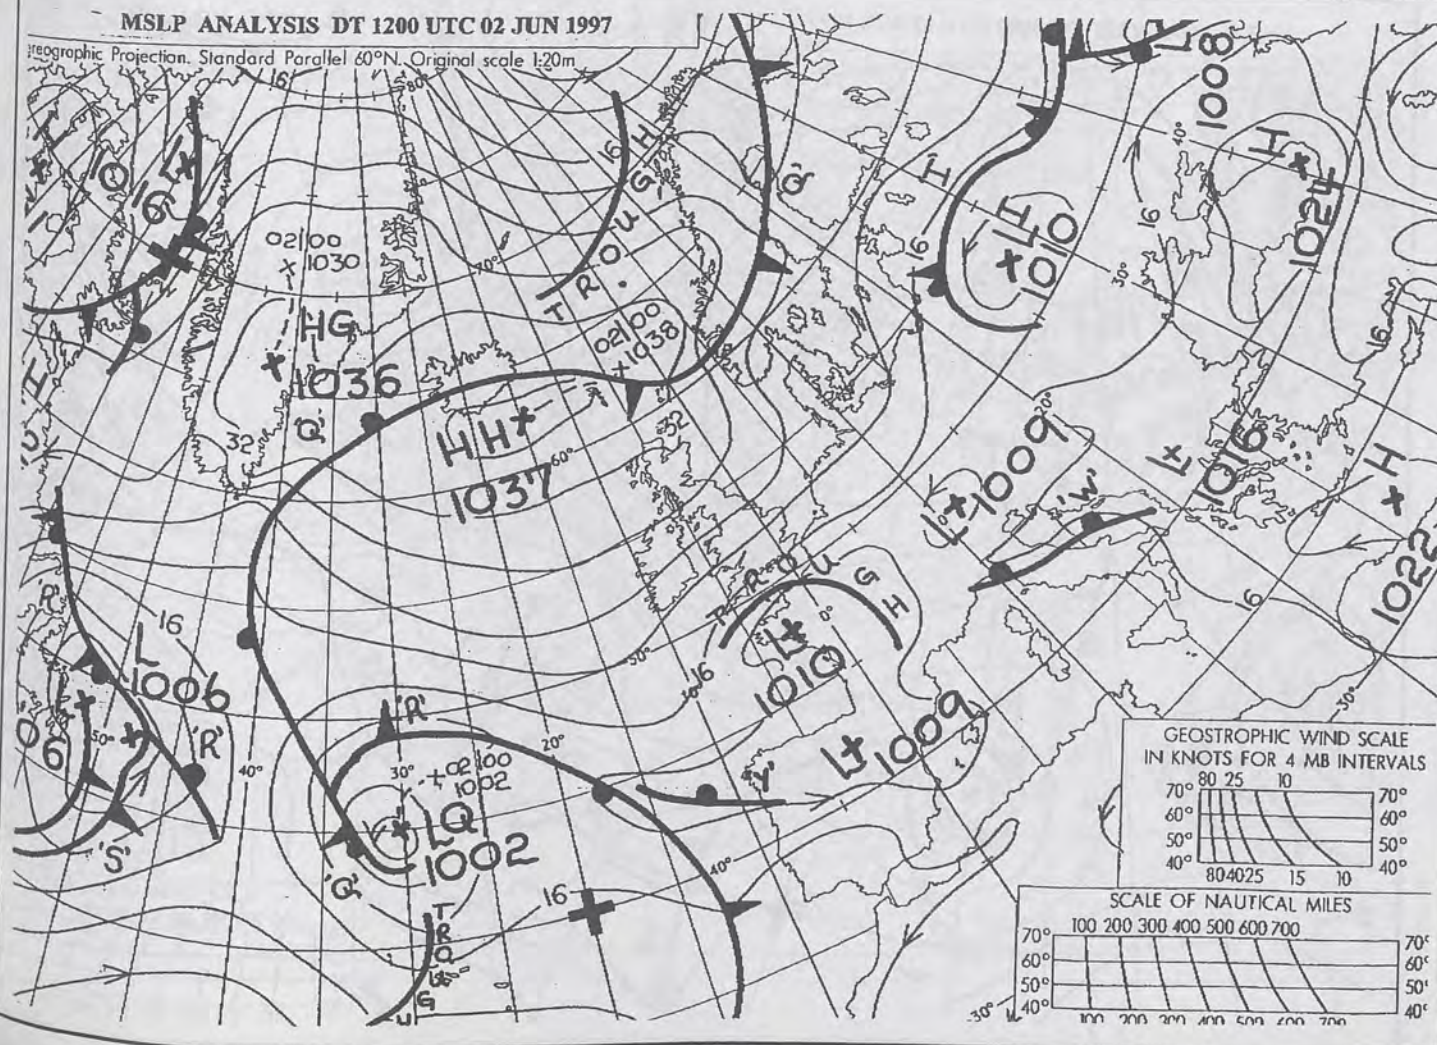 MSLP ANALYSIS DT 1200 UTC 02 JUN 1997
reographic Projection. Standard Parallel 60°N. Original scale 1:20m
16
80°
L
1016
02|00
1030
HG
1036
'Q'
32
70°
TROUGH
16
02|00
1038
H H
1037
60°
32
'Q'
H
H
L
1010
16
L
1008
40°
16
H
1024
30°
16
20°
L
1009
'W'
L
1016
H
1022
16
TROUGH
0°
L
1010
50°
16
'R'
16
L
1006
'R'
06
50°
40°
'S'
'R'
20°
02|00
1002
30°
LQ
1002
'Q'
'Y'
L
1009
40°
16
TROUG
30°
50°
GEOSTROPHIC WIND SCALE
IN KNOTS FOR 4 MB INTERVALS
80 25 10
70° 70°
60° 60°
50° 50°
40° 40°
80 40 25 15 10
SCALE OF NAUTICAL MILES
100 200 300 400 500 600 700
70° 70°
60° 60°
50° 50°
40° 40°
100 200 300 400 500 600 700